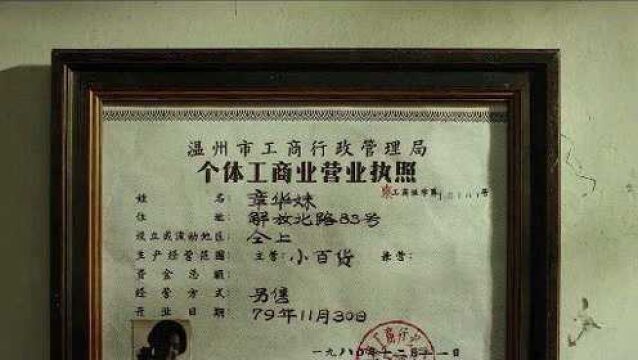 温州市工商行政管理局
个体工商业营业执照
工商证字第10101号
姓名：章华妹
住址：解放北路83号
设立或流动地区：仝上
生产经营范围：主营：小百货 兼营：
资金总额：
经营方式：另售
开业日期：79年11月30日
一九八〇年十二月十一日
工商行